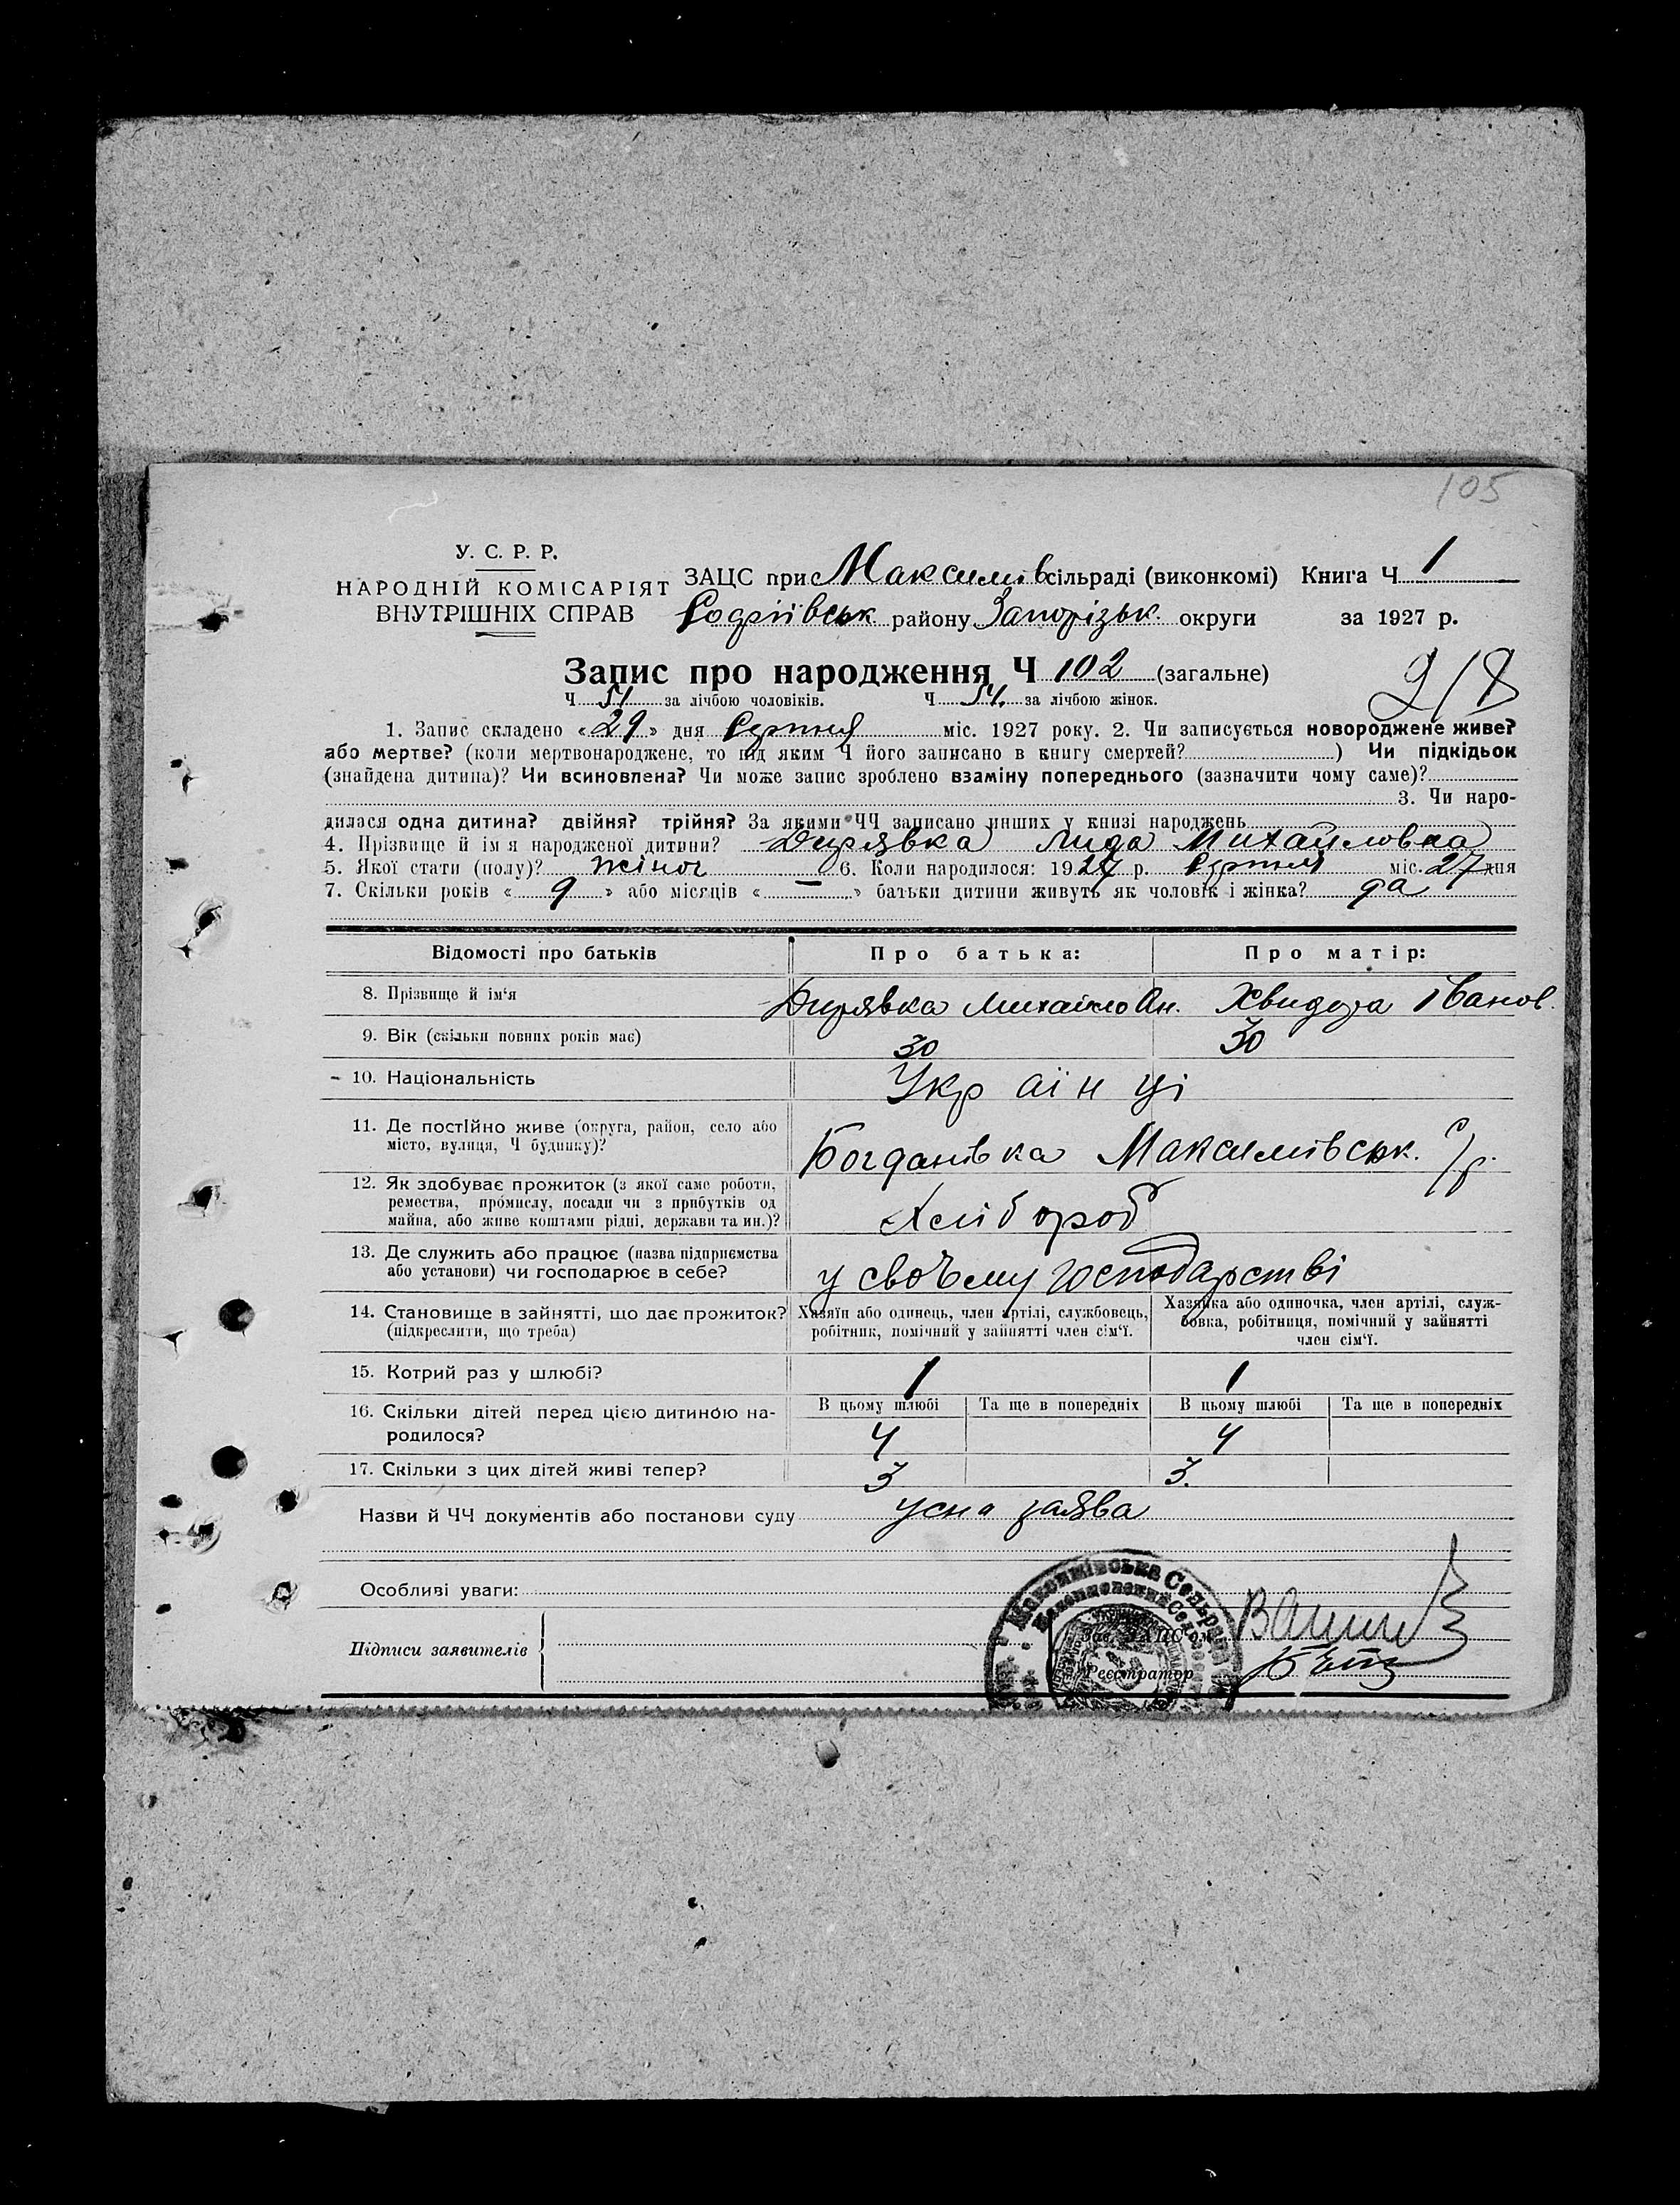 105
У. С. Р. Р.
НАРОДНІЙ КОМІСАРІЯТ
ВНУТРІШНІХ СПРАВ
ЗАЦС при Максимів сільраді (виконкомі) Книга Ч 1
Софіївськ району Запорізьк. округи за 1927 р.
Запис про народження Ч 102 (загальне)
2/8
Ч 51 за лічбою чоловіків. Ч 51. за лічбою жінок.
1. Запис складено «29» дня Серпня міс. 1927 року. 2. Чи записується новороджене живе?
або мертве? (коли мертвонароджене, то під яким Ч його записано в книгу смертей? ) Чи підкідьок
(знайдена дитина)? Чи всиновлена? Чи може запис зроблено взаміну попереднього (зазначити чому саме)?
3. Чи наро-
дилася одна дитина? двійня? трійня? За якими ЧЧ записано инших у книзі народжень
4. Прізвище й ім'я народженої дитини? Дирявка Лида Михайловна
5. Якої стати (полу)? жіноч 6. Коли народилося: 1927 р. Серпня міс. 27 дня
7. Скільки років « 9 » або місяців « — » батьки дитини живуть як чоловік і жінка? да
Відомості про батьків Про батька: Про матір:
8. Прізвище й ім'я Дирявка Михайло Ан. Хвидора Іванов.
9. Вік (скільки повних років має) 30 30
10. Національність Українці
11. Де постійно живе (округа, район, село або
місто, вулиця, Ч будинку)? Богданівка Максимівськ. с/р.
12. Як здобуває прожиток (з якої саме роботи,
ремества, промислу, посади чи з прибутків од
майна, або живе коштами рідні, держави та ин.)? Хлібороб
13. Де служить або працює (назва підприємства
або установи) чи господарює в себе? у своъму господарстві
14. Становище в зайнятті, що дає прожиток?
(підкреслити, що треба)
Хазяїн або одинець, член артілі, службовець,
робітник, помічний у зайнятті член сім'ї.
Хазяйка або одиночка, член артілі, служ-
бовка, робітниця, помічний у зайнятті
член сім'ї.
15. Котрий раз у шлюбі? 1 1
16. Скільки дітей перед цією дитиною на-
родилося?
В цьому шлюбі Та ще в попередніх В цьому шлюбі Та ще в попередніх
4 4
17. Скільки з цих дітей живі тепер? 3 3.
Назви й ЧЧ документів або постанови суду усна заява
Особливі уваги:
Підписи заявителів
Максимівська Сельрада
Зав. ЗАЦС'ом
Реєстратор